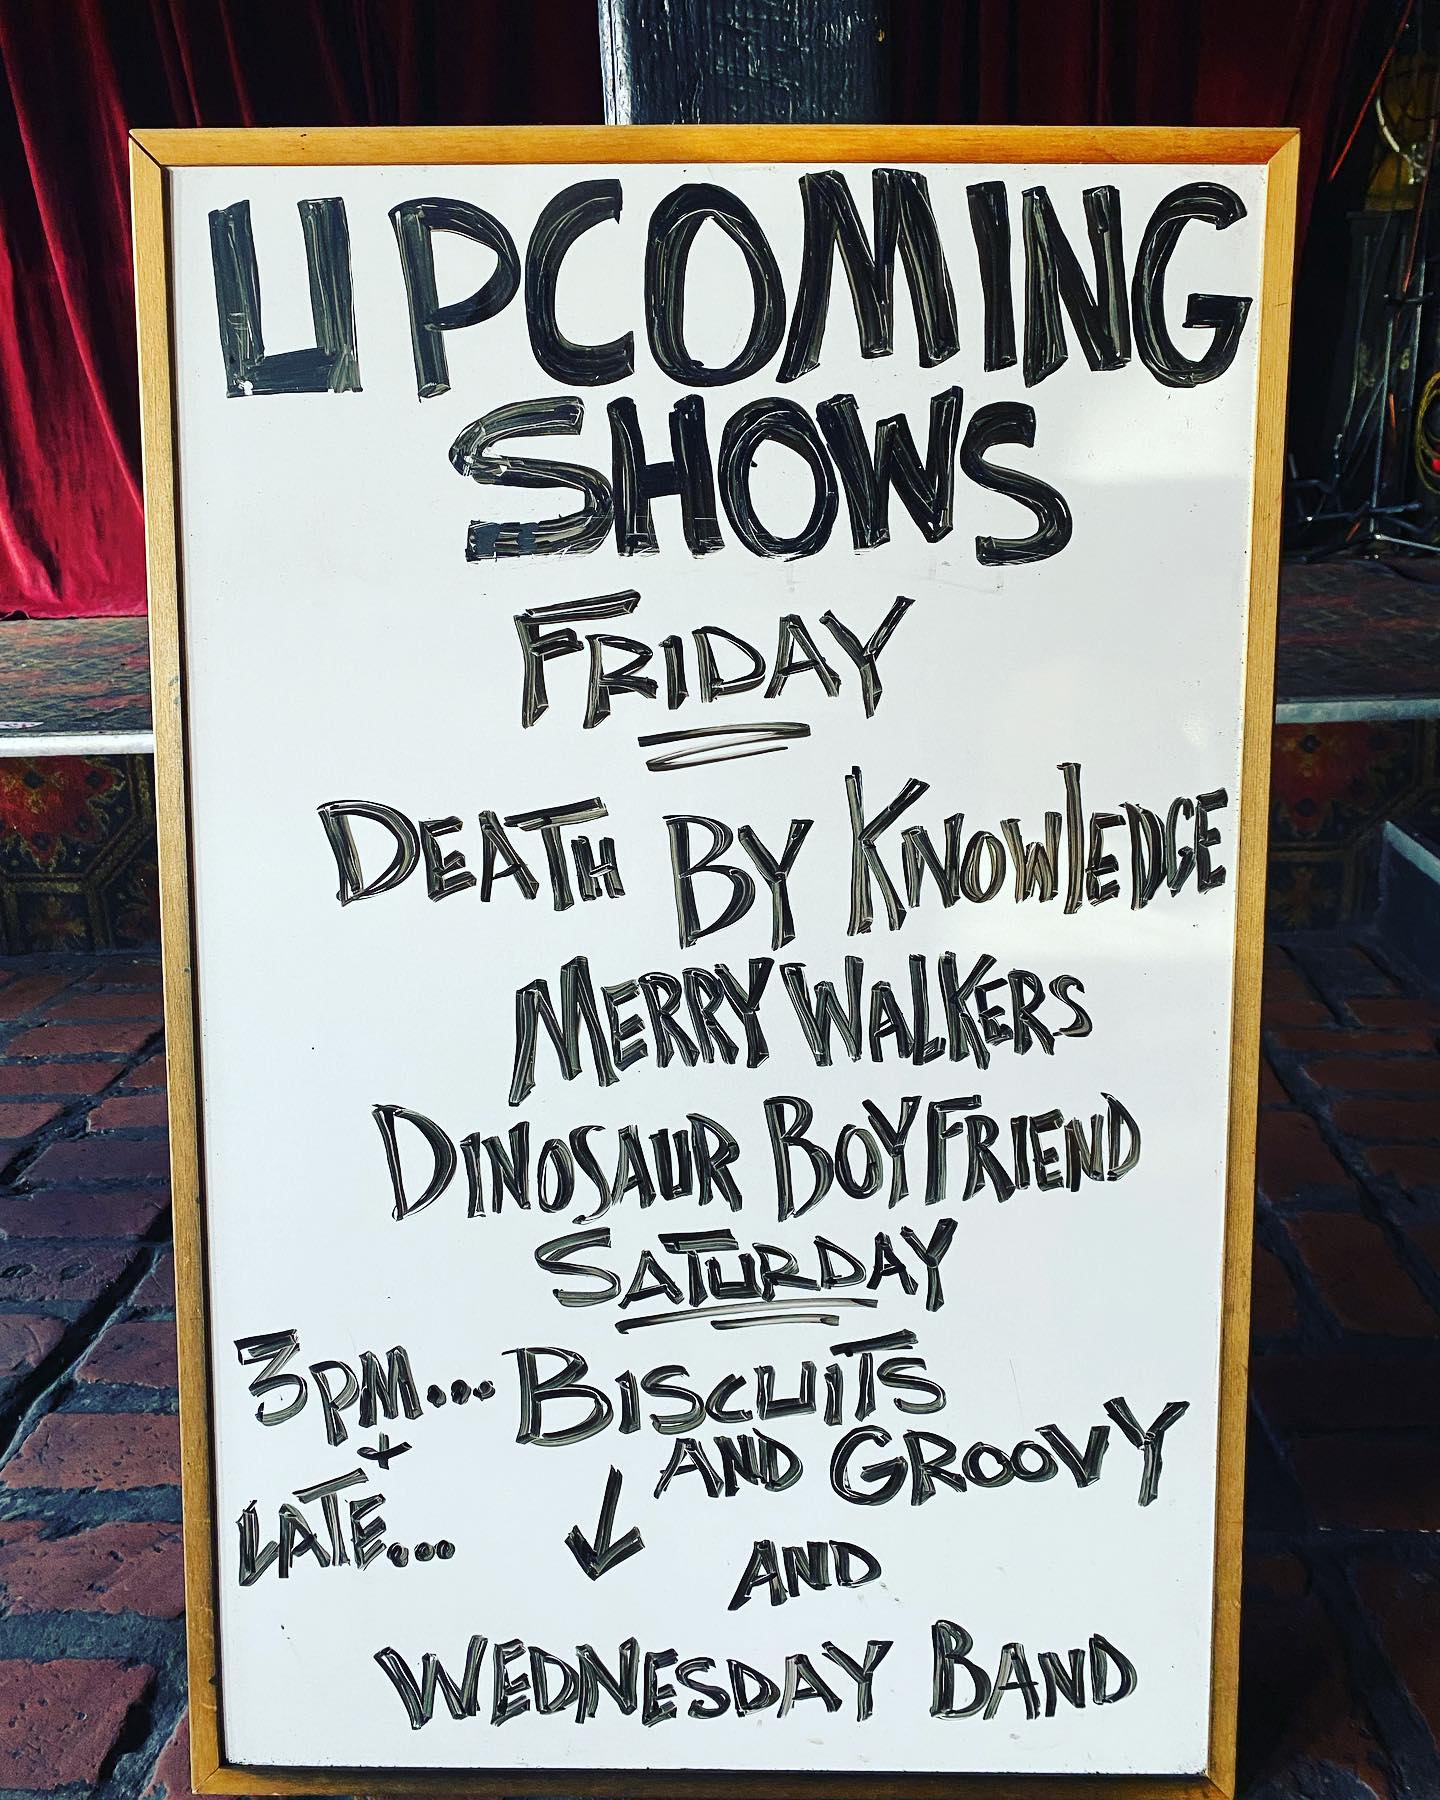 UPCOMING
SHOWS
FRIDAY
DEATH BY KNOWlEDGE
MERRY WALKERS
DINOSAUR BOYFRIEND
SATURDAY
3PM... BISCUITS
+ AND GROOVY
LATE... AND
WEDNESDAY BAND